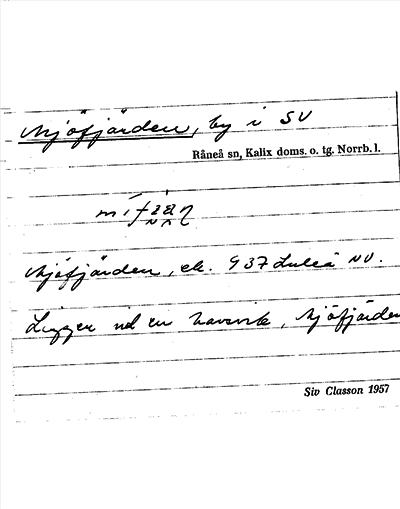 Mjöfjärden, by i SV
Råneå sn, Kalix doms. o. tg. Norrb. l.
Mjöfjärden, ek. 937 Luleå NV.
Ligger vid en havsvik, Mjöfjärden
Siv Classon 1957